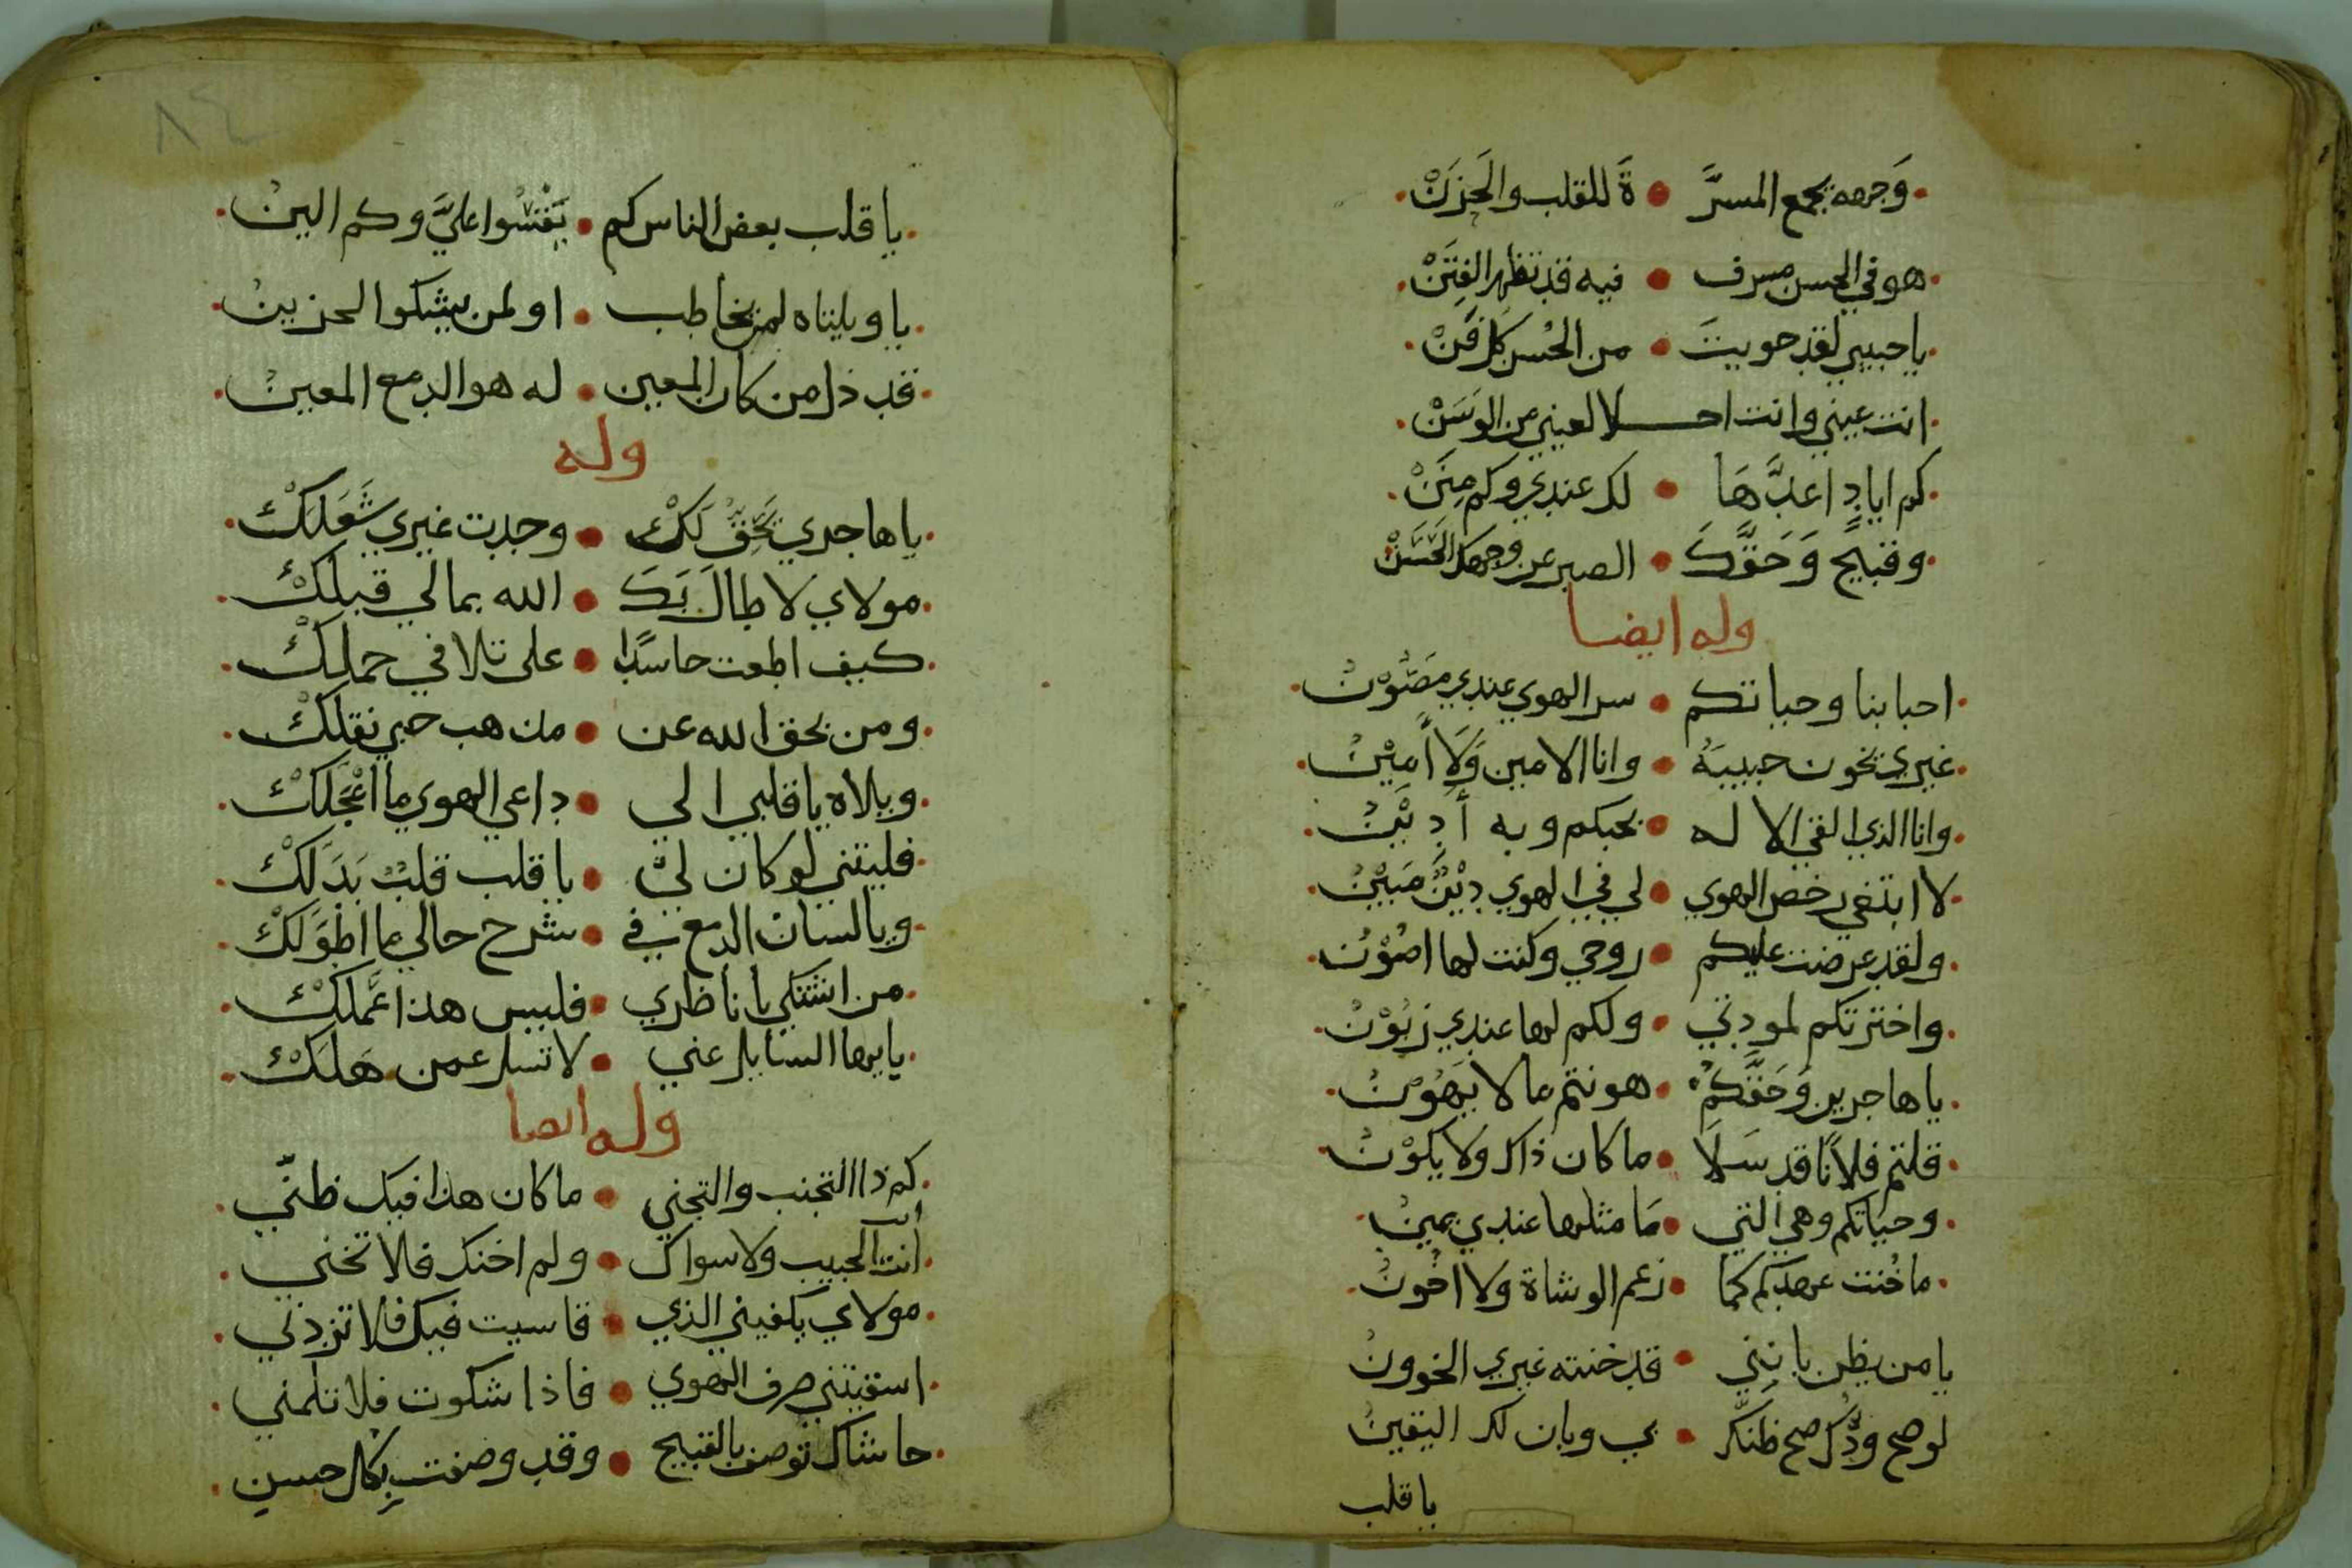 وَجهه يجمع المسرَّ • ةَ للقلب والحَزَنْ
هو في الحسن مسرف • فيه قد تظهر الفِتَنْ
يا حبيبي لقد حويتَ • من الحُسن كل فَنْ
انت عيني وانت احـــلا لعيني من الوَسَنْ
كم ايادٍ اعدَّهَا • لك عندي وكم مِنَنْ
وقبيحٌ وَحَقَّكَ • الصبر عن وجهك الحَسَنْ
وله ايضا
احبابنا وحياتكم • سر الهوي عندي مَصُوْنْ
غيري يخون حبيبَهُ • وانا الامين وَلَا أَمِيْنْ
وانا الذي القي الا له • بحبكم وبه أدِيْنْ
لا ابتغي رخص الهوي • لي في الهوي دِيْنٌ مَبِيْنْ
ولقد عرضت عليكم • روحي وكنت لها اصُوْن
واخترتكم لمودتي • ولكم لها عندي زبُوْنْ
يا هاجرين وَحَقَّكمْ • هونتم ما لا يَهُوْنْ
قلتم فلانًا قد سَلَا • ما كان ذاك ولا يكوْنْ
وحيَاتكم وهي التي • مَا مثلها عندي يمينْ
ما خُنت عهدكم كما • زعم الوشاة ولا اخُونْ
يا من يظن بانني • قد خنته غيري الخوونْ
لو صح ودُّك صح ظنّك • بي وبان لك اليقينْ
يا قلب
٨٤
يا قلب بعض الناس كم • يَقْسُوا عليَّ وكم الينْ
يا ويلتاه لمن يخاطب • او لمن يشكوا الحزينْ
قد ذل من كان المعين • له هو الدمع المعينْ
وله
يا هاجري يَحِقُّ لَكْ • وجدت غيري شَغَلَكْ
مولاي لا طالَ بَكَ • الله بما لي قبلكْ
كيف اطعت حاسدًا • على تلافي حملكْ
ومن بحق الله عن • مذهب حبي نقلكْ
ويلاه يا قلبي الي • داعي الهوي ما اعْجَلَكْ
فليتني لو كان لي • يا قلب قلبٌ بَدَلَكْ
ويا لسان الدمع في • شرح حالي ما اطوَلَكْ
من اشتكي يا ناظري • فليس هذا عَمَلكْ
يا ايها السايل عني • لا تسل عمن هَلَكْ
وله ايضا
كم ذا التجنب والتجني • ما كان هذا فيك ظنّي
انت الحبيب ولا سواك • ولم اخنك فلا تخني
مولاي يكفيني الذي • قاسيت فيك فلا تزدني
اسقيتني صرف الهوي • فاذا شكوت فلا تلمني
حاشاك توصف بالقبيح • وقد وصفت بِكل حسن